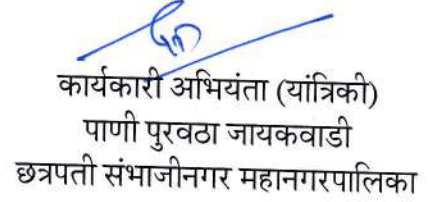 कार्यकारी अभियंता (यांत्रिकी)
पाणी पुरवठा जायकवाडी
छत्रपती संभाजीनगर महानगरपालिका